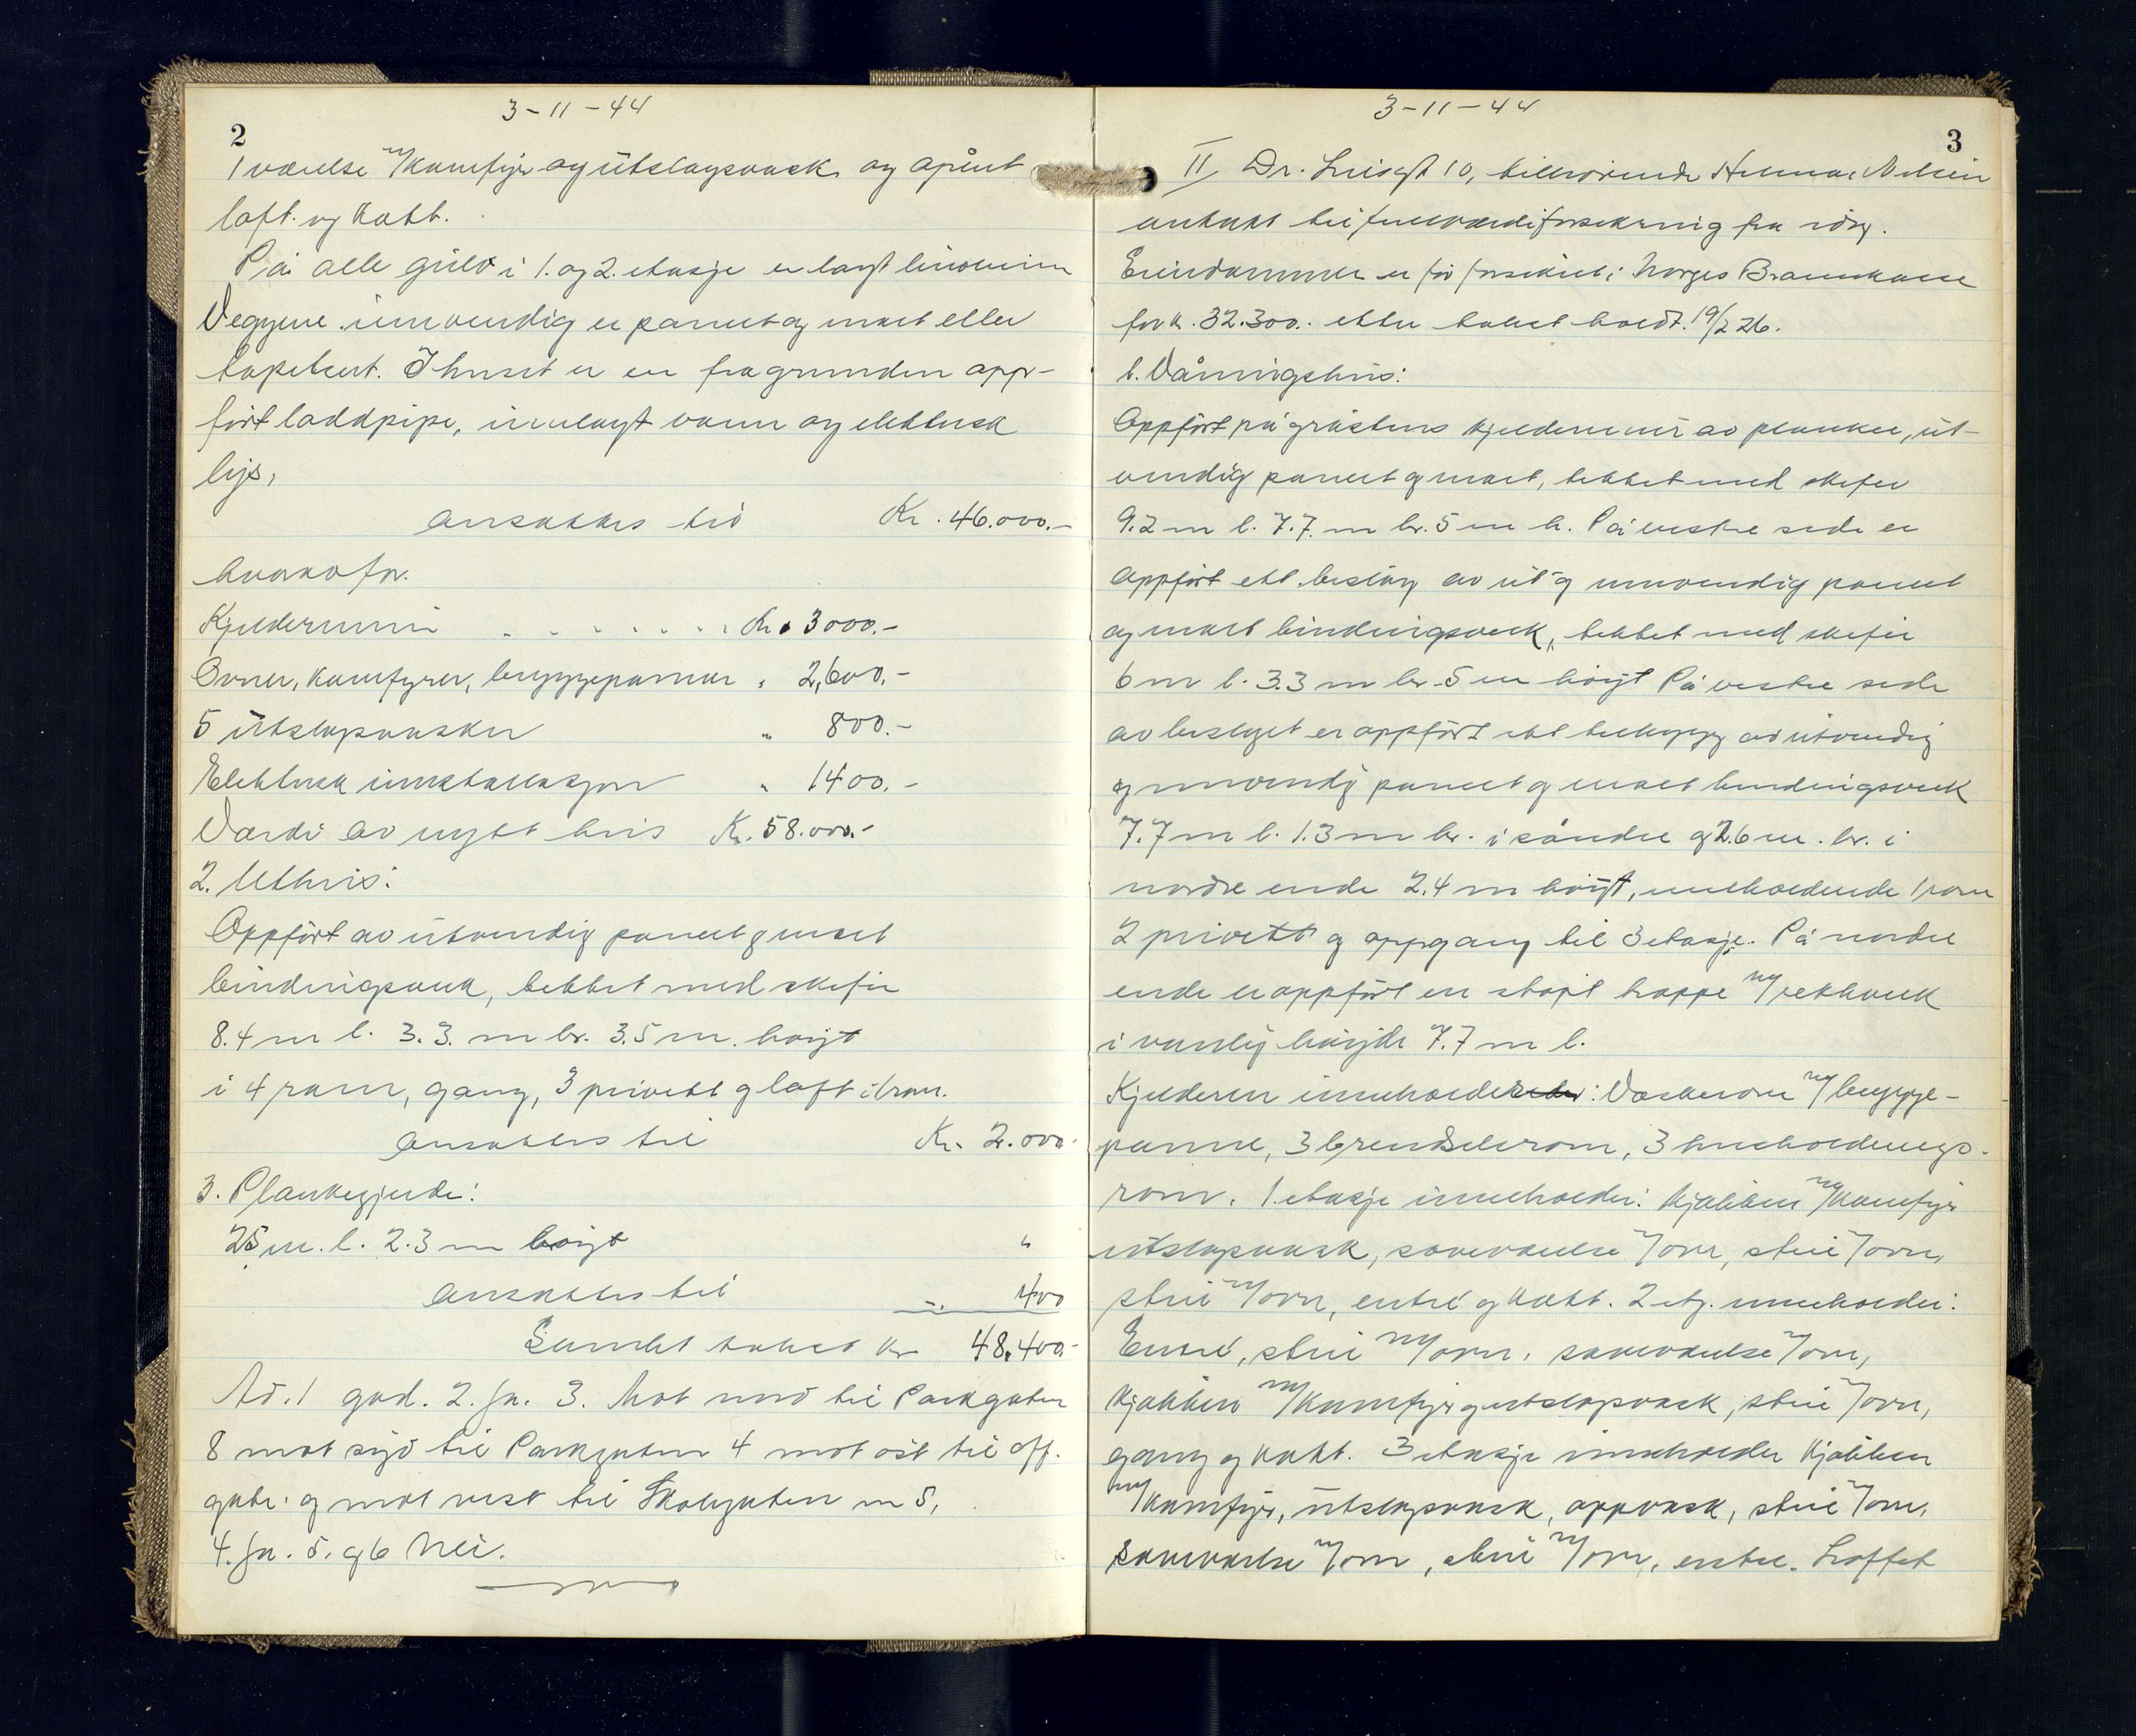 3-11-44
2
1 værelse m/komfyr og utslagsvask og åpent
loft og kott.
På alle gulv i 1. og 2. etasje er lagt linoleum
Veggene innvendig er panelt og malt eller
tapetsert. I huset er en fra grunnen opp-
ført loddpipe, innlagt vann og elektrisk
lys,
ansattes til Kr. 46.000.-
hvorav for.
Kjeldermur . . . . . . . Kr. 3000.-
Ovner, komfyrer, bryggepanner " 2,600.-
5 utslagsvasker " 800.-
Elektrisk innstallasjon " 1400.-
Værdi av nytt hus Kr. 58.000.-
2. Uthus:
Oppført av utvendig panelt og malt
bindingsverk, tekket med skifer
8.4 m l. 3.3. m br. 3.5 m. høyt
i 4 rom, gang, 3 privett og loft i 1 rom.
ansattes til Kr. 2.000.-
3. Plankegjerde:
25 m. l. 2.3 m høyt "
ansattes til " 400
Samlet takst Kr 48.400.-
Ad. 1 god. 2. Ja. 3. Mot nord til Parkgaten
8 mot syd til Parkgaten 4 mot øst til off.
gate og mot vest til Skolegaten nr 5,
4. Ja. 5. og 6 Nei.
3-11-44
3
II Dr. gt 10, tilhørende Nilsen
antatt til fullverdiforsikring fra idag.
Eiendommen er før forsikret i Norges Brannkasse
for kr. 32.300.- etter takst holdt 19/2 26.
1. Våningshus:
Oppført på gråstens kjeldermur av planker, ut-
vendig panelt og malt, tekket med skifer
9.2 m l. 7.7. m br. 5 m h. På vestre side er
oppført ett beslag av ut- og innvendig panelt
og malt bindingsverk, tekket med skifer
6 m l. 3.3 m br. 5 m høyt På vestre side
av beslaget er oppført ett tilbygg av utvendig
og innvendig panelt og malt bindingsverk
7.7 m l. 1.3 m br. i søndre og 2.6 m. br. i
nordre ende 2.4 m høyt, inneholdende 1 rom
2 privett og oppgang til 3 etasje. På nordre
ende er oppført en støpt trappe m/rekkverk
i vanlig høyde 7.7 m l.
Kjelderen inneholder: Vaskerom m/brygge-
panne, 3 brendselsrom, 3 husholdnings-
rom. 1. etasje inneholder: Kjøkken m/komfyr
utslagsvask, soveværelse m/ovn, stue m/ovn,
stue m/ovn, entré og kott. 2 etg. inneholder:
Entré, stue m/ovn, soveværelse m/ovn,
kjøkken m/komfyr og utslagsvask, stue m/ovn,
gang og kott. 3 etasje inneholder kjøkken
m/komfyr, utslagsvask, oppvask, stue m/ovn,
soveværelse m/ovn, stue m/ovn, entre. Loftet